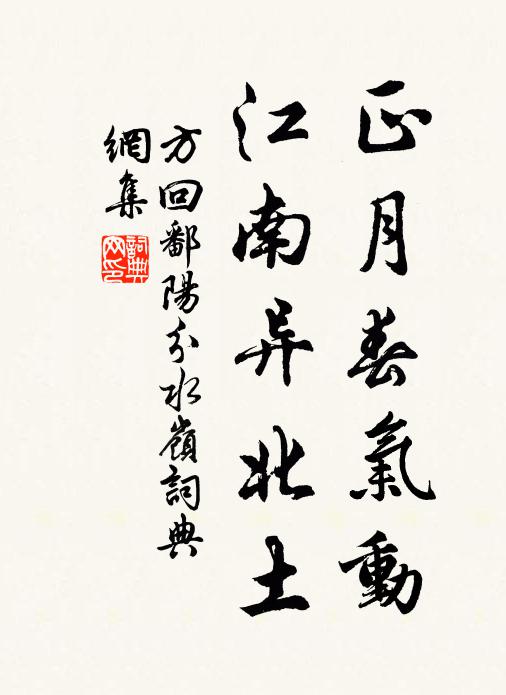 正月春氣動
江南异北土
方回鄱陽分水嶺詞典
網集
詞典網印